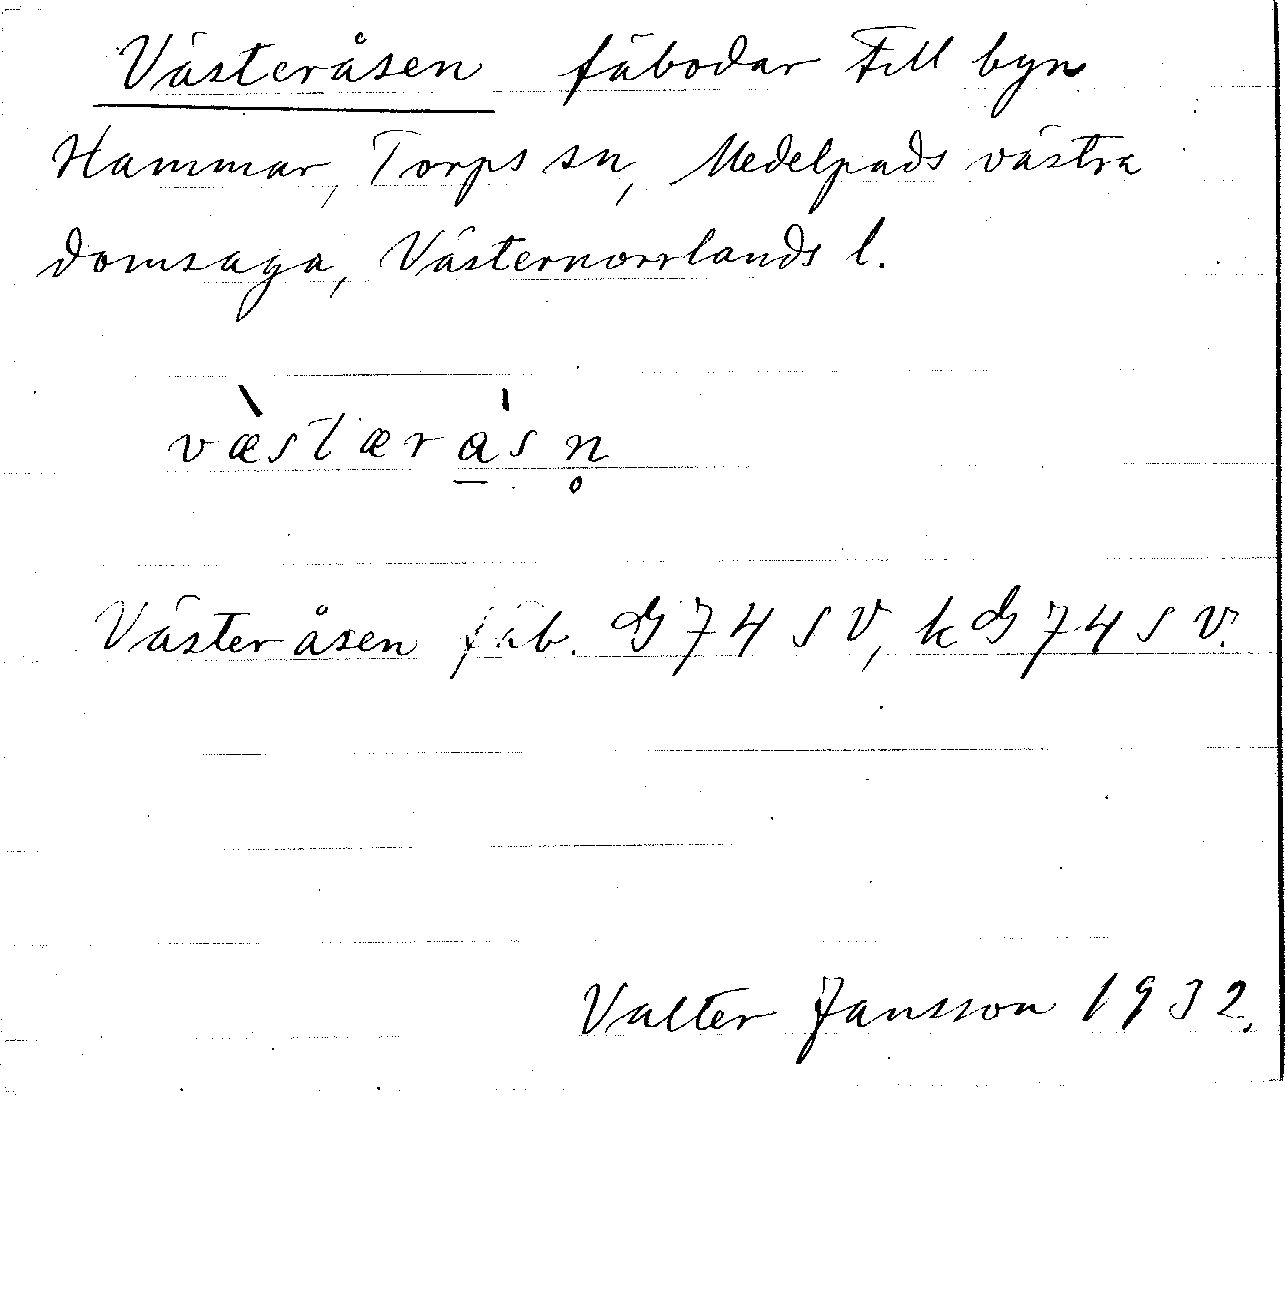 Västeråsen fäbodar till byn
Hammar, Torps sn, Medelpads västra
domsaga, Västernorrlands l.
væ̀stæra̠̍sn̥
Västeråsen fäb. G74SV, kG74SV.
Valter Jansson 1932.